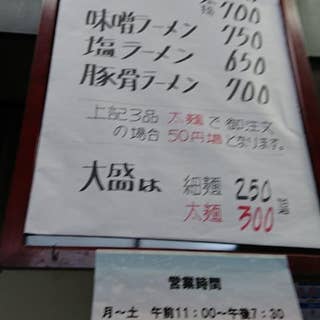 麺 700
味噌ラーメン 750
塩ラーメン 650
豚骨ラーメン 700
上記3品 太麺で御注文
の場合 50円増となります。
大盛は 細麺 250
太麺 300
営業時間
月～土 午前11：00～午後7：30